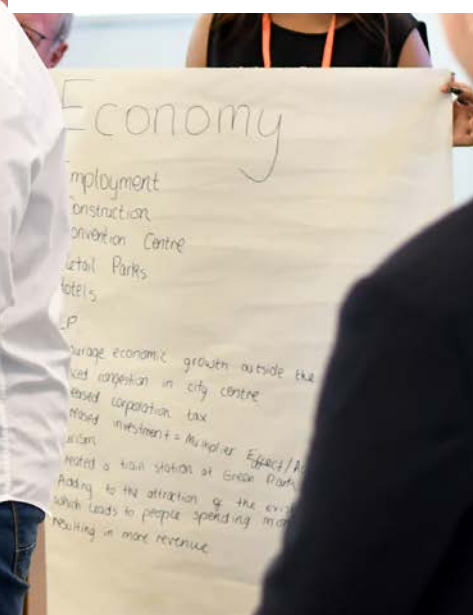 Economy
Employment
Construction
Convention Centre
Retail Parks
Hotels
economic growth outside the
congestion in city centre
corporation tax
investment = Multiplier Effect /
a train station at Green Park
Adding to the attraction of the
which leads to people spending
resulting in more revenue